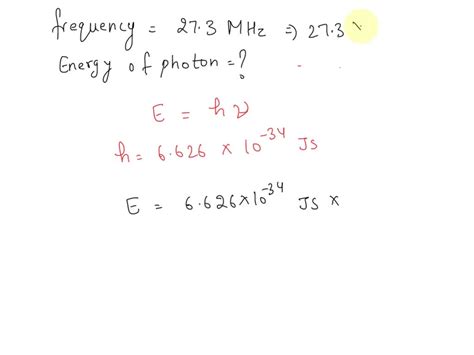 frequency = 27.3 MHz ⇒ 27.3 x
Energy of photon = ?
E = hν
h = 6.626 × 10⁻³⁴ JS
E = 6.626×10⁻³⁴ JS ×